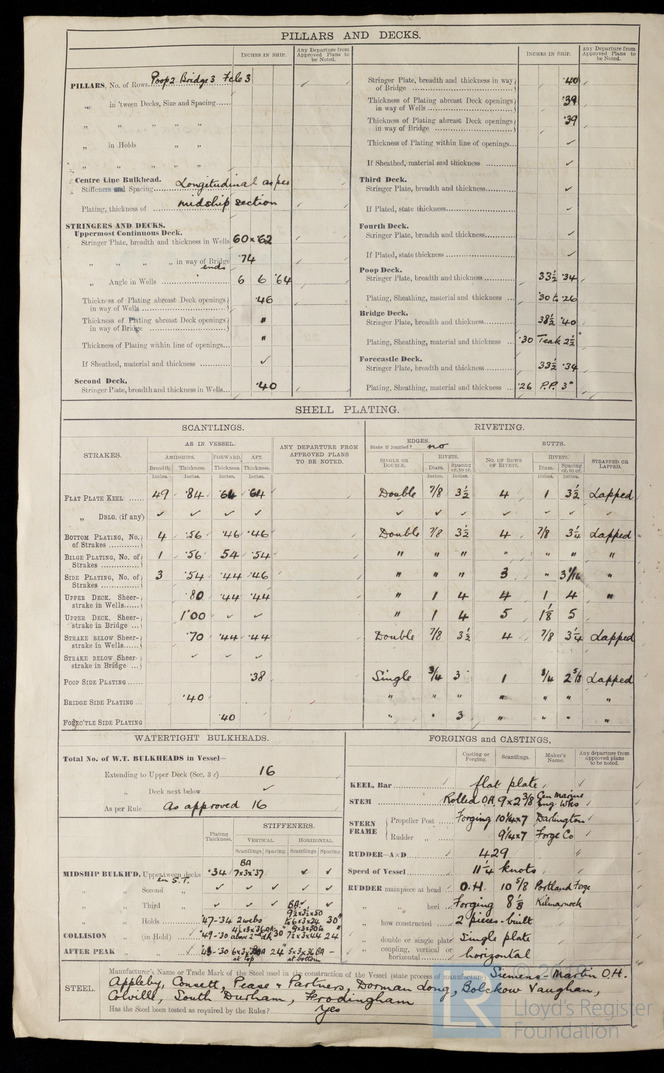 PILLARS AND DECKS.
INCHES IN SHIP.
Any Departure from Approved Plans to be Noted.
PILLARS, No. of Rows Poop 2 Bridge 3 Fcle 3
„ in 'tween Decks, Size and Spacing
„ „ „ „
„ in Holds „ „
„ „ „ „
Centre Line Bulkhead.
Stiffeners and Spacing Longitudinal as per
Plating, thickness of midship section
STRINGERS AND DECKS.
Uppermost Continuous Deck.
Stringer Plate, breadth and thickness in Wells 60 × ·62
„ „ „ „ in way of Bridge ·74
ends
„ Angle in Wells 6 6 ·64
Thickness of Plating abreast Deck openings in way of Wells ·46
Thickness of Plating abreast Deck openings in way of Bridge "
Thickness of Plating within line of openings "
If Sheathed, material and thickness ✓
Second Deck.
Stringer Plate, breadth and thickness in Wells ·40
INCHES IN SHIP.
Any Departure from Approved Plans to be Noted.
Stringer Plate, breadth and thickness in way of Bridge ·40
Thickness of Plating abreast Deck openings in way of Wells ·39
Thickness of Plating abreast Deck openings in way of Bridge ·39
Thickness of Plating within line of openings ✓
If Sheathed, material and thickness ✓
Third Deck.
Stringer Plate, breadth and thickness ✓
If Plated, state thickness ✓
Fourth Deck.
Stringer Plate, breadth and thickness ✓
If Plated, state thickness ✓
Poop Deck.
Stringer Plate, breadth and thickness 33½ ·34
Plating, Sheathing, material and thickness ·30 to ·26
Bridge Deck.
Stringer Plate, breadth and thickness 38½ ·40
Plating, Sheathing, material and thickness ·30 Teak 2½"
Forecastle Deck.
Stringer Plate, breadth and thickness 33½ ·34
Plating, Sheathing, material and thickness ·26 P.P. 3"
SHELL PLATING.
SCANTLINGS.
RIVETING.
STRAKES.
AS IN VESSEL.
AMIDSHIPS. FORWARD. AFT.
Breadth. Thickness. Thickness. Thickness.
Inches. Inches. Inches. Inches.
ANY DEPARTURE FROM APPROVED PLANS TO BE NOTED.
EDGES.
State if joggled? no
SINGLE OR DOUBLE.
RIVETS.
Diam. Spacing cr. to cr.
Inches. Inches.
BUTTS.
NO. OF ROWS OF RIVETS.
RIVETS.
Diam. Spacing cr. to cr.
Inches. Inches.
STRAPPED OR LAPPED.
FLAT PLATE KEEL 49 ·84 ·64 ·64 Double 7/8 3½ 4 1 3½ Lapped
„ DBLG. (if any) ✓ ✓ ✓ ✓ ✓ ✓ ✓ ✓ ✓ ✓ ✓
BOTTOM PLATING, No. of Strakes 4 ·56 ·46 ·46 Double 7/8 3½ 4 7/8 3¼ Lapped
BILGE PLATING, No. of Strakes 1 ·56 ·54 ·54 " " " " " " "
SIDE PLATING, No. of Strakes 3 ·54 ·44 ·46 " " " 3 " 3 1/16 "
UPPER DECK, Sheerstrake in Wells ·80 ·44 ·44 " 1 4 4 1 4 "
UPPER DECK, Sheerstrake in Bridge 1·00 ✓ ✓ " 1 4 5 1⅛ 5
STRAKE BELOW Sheerstrake in Wells ·70 ·44 ·44 Double 7/8 3½ 4 7/8 3¼ Lapped
STRAKE BELOW Sheerstrake in Bridge ✓ ✓ ✓
POOP SIDE PLATING ·38 Single 3/4 3 1 3/4 2 5/8 Lapped
BRIDGE SIDE PLATING ·40 " " " " " " "
FORE'C'TLE SIDE PLATING ·40 " " 3 " " " "
WATERTIGHT BULKHEADS.
Total No. of W.T. BULKHEADS in Vessel—
Extending to Upper Deck (Sec. 3 c) 16
„ Deck next below ✓
As per Rule As approved 16
Plating Thickness.
STIFFENERS.
VERTICAL. HORIZONTAL.
Scantlings. Spacing. Scantlings. Spacing.
MIDSHIP BULKH'D, Upper tween decks ·34 BA 7×3×·37 ✓ ✓
in S.T.
„ Second „ ✓ ✓ ✓ ✓ ✓
„ Third „ ✓ ✓ ✓
„ Holds ·47-·34 2 webs 30"
COLLISION „ (in Hold) ·49-·30 30 24
AFTER PEAK „ „ 24"
at top at bottom
FORGINGS and CASTINGS.
Casting or Forging. Scantlings. Maker's Name. Any departure from approved plans to be noted.
KEEL, Bar flat plate
STEM Rolled O.H. 9×2 3/8 Gen Marine Eng. Wks
STERN FRAME
Propeller Post Forging 10¼×7 Darlington
Rudder „ 9¼×7 Forge Co
RUDDER—A×D 429
Speed of Vessel 11¼ knots
RUDDER mainpiece at head O.H. 10 5/8 Portland Forge
„ „ heel Forging 8⅛ Kilmarnock
„ how constructed 2 pieces-built
„ double or single plate Single plate
„ coupling, vertical or horizontal horizontal
STEEL.
Manufacturer's Name or Trade Mark of the Steel used in the construction of the Vessel (state process of manufacture) Siemens-Martin O.H.
Appleby, Consett, Pease & Partners, Dorman Long, Bolckow Vaughan,
Colvill, South Durham, Frodingham
Has the Steel been tested as required by the Rules? Yes
LR
Lloyd's Register
Foundation